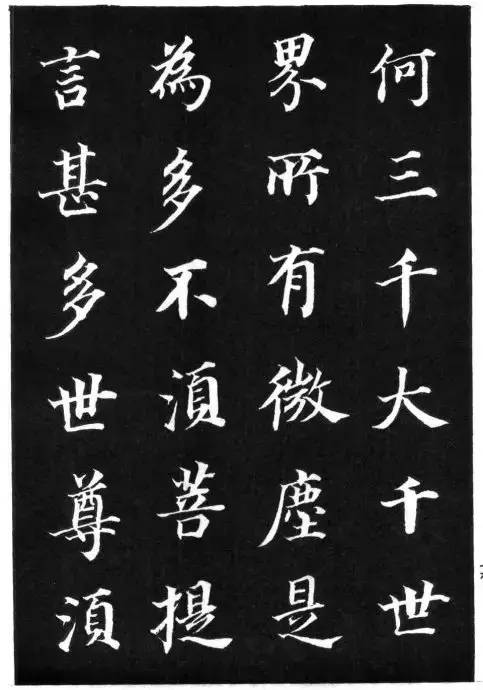 何三千大千世
界所有微塵是
為多不湏菩提
言甚多世尊湏